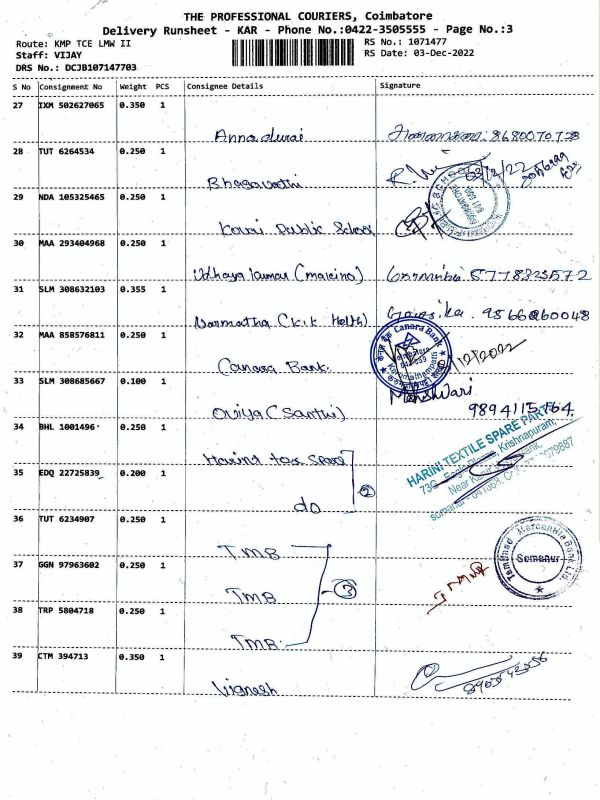 THE PROFESSIONAL COURIERS, Coimbatore
Delivery Runsheet - KAR - Phone No.:0422-3505555 - Page No.:3
Route: KMP TCE LMW II
RS No.: 1071477
Staff: VIJAY
RS Date: 03-Dec-2022
DRS No.: DCJB107147703
S No Consignment No Weight PCS Consignee Details Signature
27 IXM 502627065 0.350 1
Annadurai 8680070728
28 TUT 6264534 0.250 1
Bhagavathi
29 NDA 105325465 0.250 1
Kovai Public School
30 MAA 293404968 0.250 1
Udhaya Kumar
31 SLM 308632103 0.355 1
Narmatha (K.K Health)
32 MAA 858576811 0.250 1
Canara Bank
Canara Bank.
33 SLM 308685667 0.100 1
Oviya (Santhi) 9894115764
34 BHL 1001496 0.250 1
HARINI TEXTILE SPARE PARTS
Krishnapuram,
35 EDQ 22725839 0.200 1
do
2
36 TUT 6234907 0.250 1
TMB
Tamilnad Mercantile Bank Ltd.
Somanur
37 GGN 97963602 0.250 1
TMB
3
38 TRP 5804718 0.250 1
TMB
39 CTM 394713 0.350 1
Vignesh